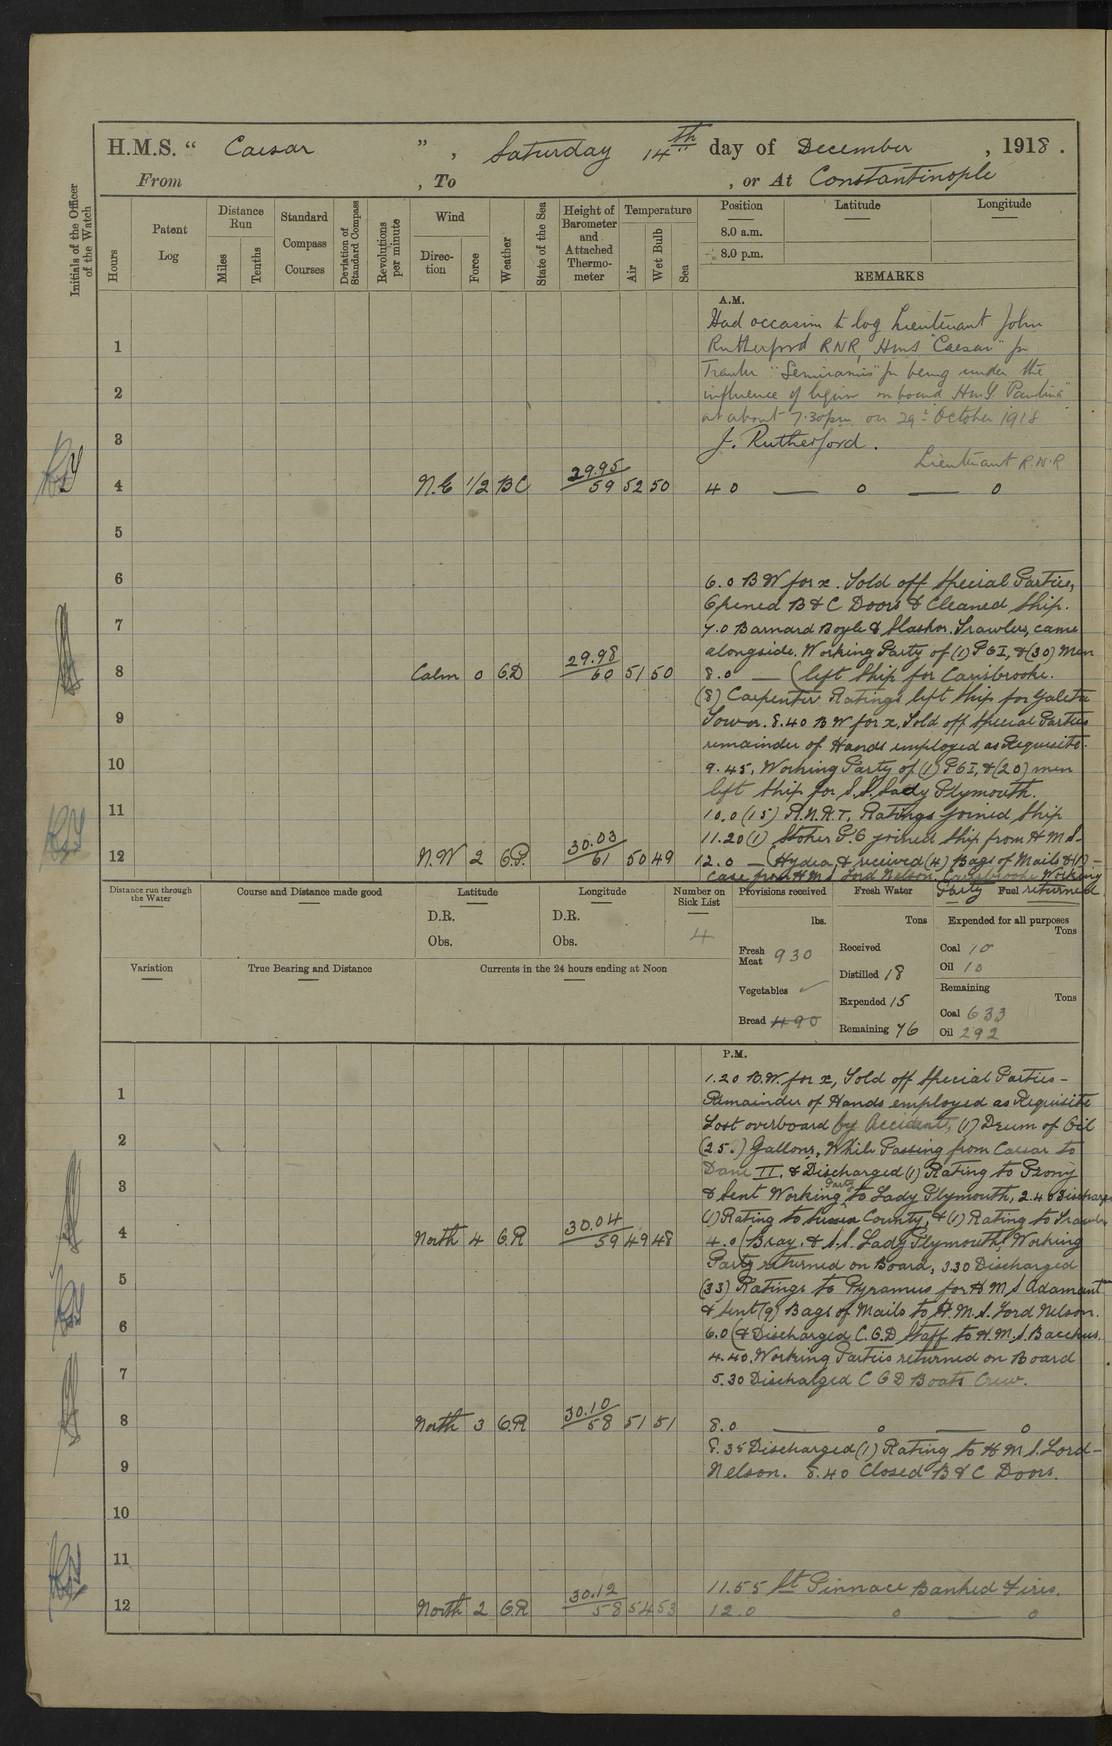 H.M.S. “ Caesar ” , Saturday 14th day of December , 1918 .
From , To , or At Constantinople
Initials of the Officer of the Watch
Hours
Patent Log
Distance Run
Miles
Tenths
Standard Compass Courses
Deviation of Standard Compass
Revolutions per minute
Wind
Direction
Force
Weather
State of the Sea
Height of Barometer and Attached Thermometer
Temperature
Air
Wet Bulb
Sea
Position
Latitude
Longitude
8.0 a.m.
8.0 p.m.
REMARKS
A.M.
Had occasion to log Lieutenant John
1 Rutherford RNR, Hms "Caesar" for
Trawler "Semiramis" for being under the
2 influence of liquor on board HMY "Paulina"
at about 7.30pm on 29th October 1918
3 J. Rutherford.
Lieutenant R.N.R
4 N.E 1/2 BC 29.95/59 52 50 4 0 — 0 — 0
5
6 6.0 B W for x. Told off Special Parties,
Opened B & C Doors & Cleaned Ship.
7 7.0 Barnard Boyle & Slasher. Trawlers, came
alongside. Working Party of (1) P O I, & (30) men
8 Calm 0 GD 29.98/60 51 50 8.0 — (left Ship for Carisbrooke.
(8) Carpenter Ratings left Ship for Galeta
9 Tower. 8.40 B W for x, Told off Special Parties
remainder of Hands employed as Requisite.
10 9.45, Working Party of (1) P O I, & (20) men
left Ship for S.S. Lady Plymouth.
11 10.0 (15) R.N.R.T. Ratings joined Ship
11.20 (1) Stoker P.O joined Ship from H M S-
12 N.W 2 G.P. 30.03/61 50 49 12.0 — (Hydra & received (4) Bags of Mails & (1) -
case from H M S Lord Nelson, Carisbrooke Working
Party returned
Distance run through the Water
Course and Distance made good
Latitude
D.R.
Obs.
Longitude
D.R.
Obs.
Number on Sick List
4
Variation
True Bearing and Distance
Currents in the 24 hours ending at Noon
Provisions received
lbs.
Fresh Meat 930
Vegetables ✓
Bread 490
Fresh Water
Tons
Received
Distilled 18
Expended 15
Remaining 76
Fuel
Expended for all purposes
Tons
Coal 10
Oil 10
Remaining
Tons
Coal 633
Oil 292
P.M.
1.20 B.W. for x, Told off Special Parties -
1 Remainder of Hands employed as Requisite
Lost overboard by Accident, (1) Drum of Oil
2 (25.) Gallons, While Passing from Caesar to
Dane II. & Discharged (1) Rating to Peony
3 & Sent Working Party to Lady Plymouth, 2.40 Discharged
(1) Rating to Sussex County, & (1) Rating to Trawler
4 North 4 G.R 30.04/59 49 48 4.0 (Bray. & S.S. Lady Plymouth, Working
Party returned on Board, 3.30 Discharged
5 (33) Ratings to Pyramus for H M S Adamant
& Sent (9) Bags of Mails to H.M.S. Lord Nelson.
6 6.0 (& Discharged C.G.D Staff to H.M.S. Bacchus.
4.40. Working Parties returned on Board
7 5.30 Discharged C G D Boats Crew.
8 North 3 G.R 30.10/58 51 51 8.0 — 0 — 0
8.35 Discharged (1) Rating to H M S. Lord -
9 Nelson. 8.40 Closed B & C Doors.
10
11
11.55 St Pinnace Banked Fires.
12 North 2 G.R 30.12/58 54 53 12.0 — 0 — 0